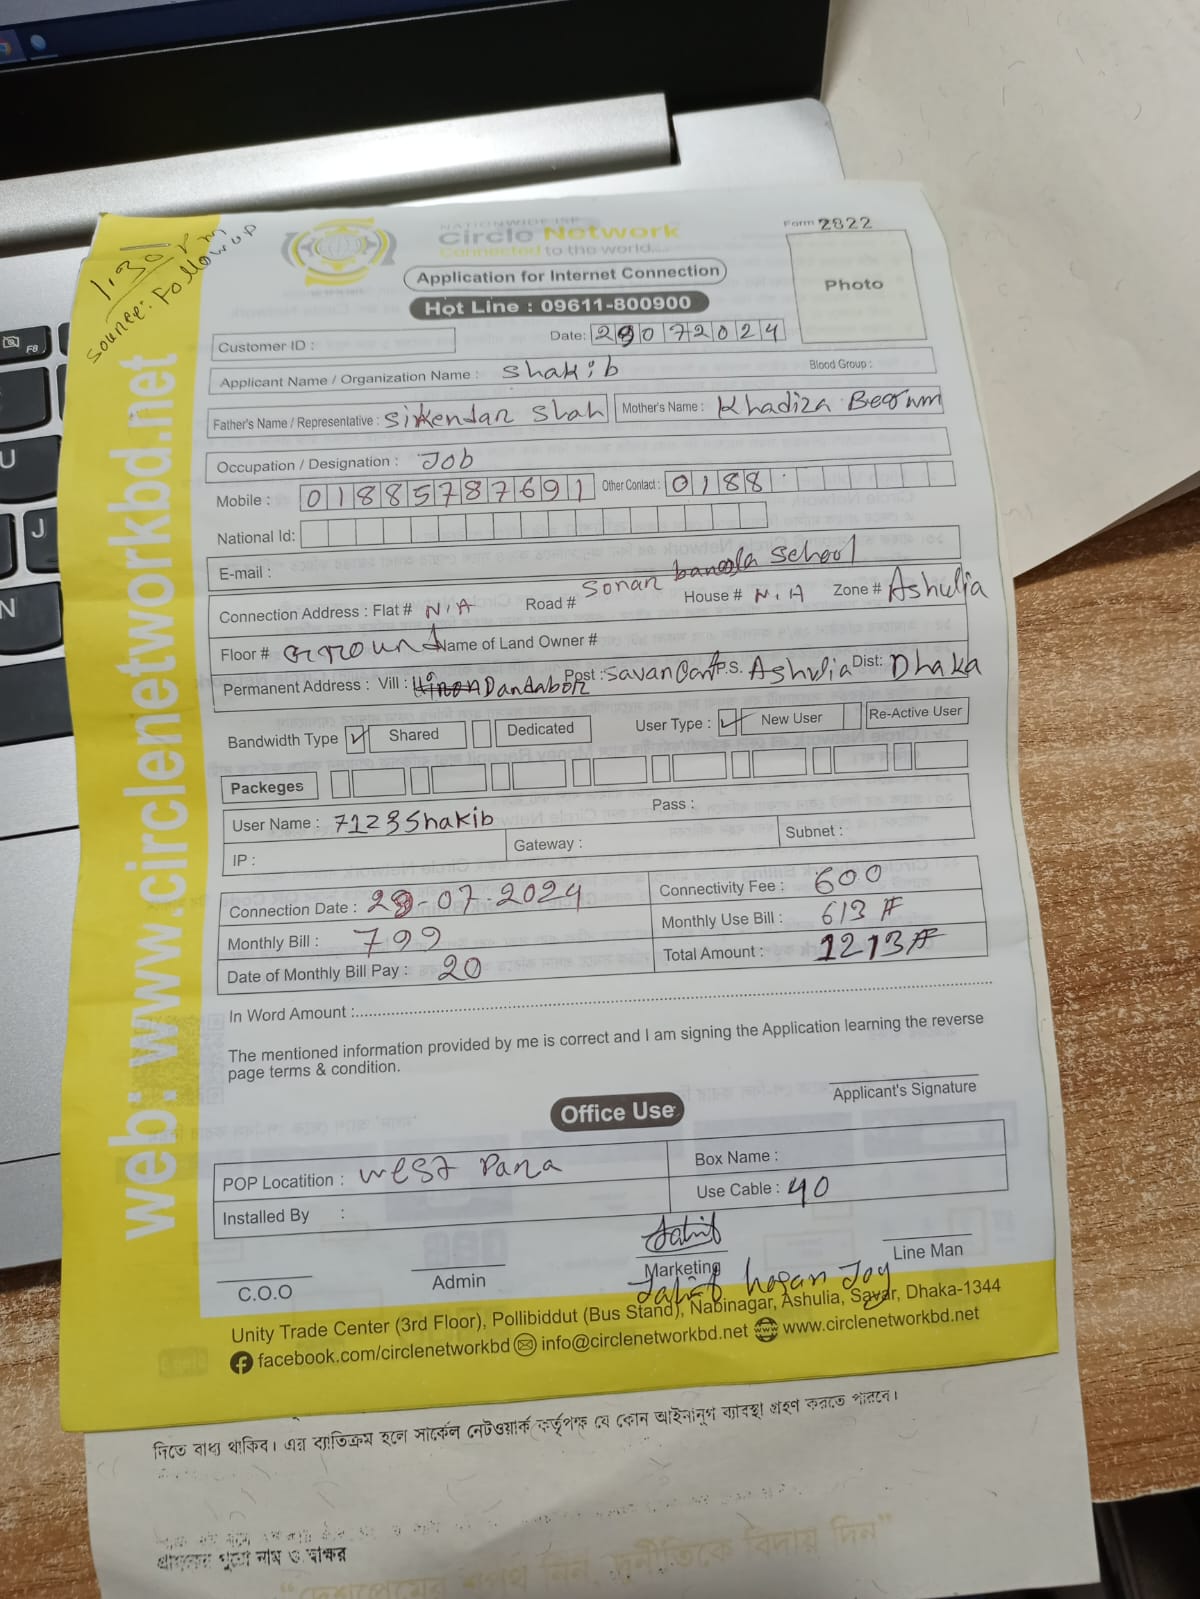 1:30 Pm
Source: Followup
web: www.circlenetworkbd.net
NATIONWIDE ISP
Form 2822
Circle Network
Connected to the world....
Application for Internet Connection
Photo
Hot Line : 09611-800900
Customer ID :
Date: 29072024
Applicant Name / Organization Name : Shakib Blood Group :
Father's Name / Representative : Sikendar Shah Mother's Name : Khadiza Begum
Occupation / Designation : Job
Mobile : 01885787691 Other Contact : 0188
National Id:
E-mail :
Connection Address : Flat # N/A Road # Sonar bangla School House # N/A Zone # Ashulia
Floor # Ground Name of Land Owner #
Permanent Address : Vill : Dandabor Post : Savar Cant P.S. Ashulia Dist: Dhaka
Bandwidth Type Shared Dedicated User Type : New User Re-Active User
Packeges
User Name : 7123Shakib Pass :
IP : Gateway : Subnet :
Connection Date : 29-07-2024 Connectivity Fee : 600
Monthly Bill : 799 Monthly Use Bill : 613
Date of Monthly Bill Pay : 20 Total Amount : 1213
In Word Amount :
The mentioned information provided by me is correct and I am signing the Application learning the reverse
page terms & condition.
Applicant's Signature
Office Use
POP Locatition : West Para Box Name :
Installed By : Use Cable : 40
C.O.O Admin Marketing Line Man
hosan Joy
Unity Trade Center (3rd Floor), Pollibiddut (Bus Stand), Nabinagar, Ashulia, Savar, Dhaka-1344
facebook.com/circlenetworkbd info@circlenetworkbd.net www.circlenetworkbd.net
দিতে বাধ্য থাকিব। এর ব্যতিক্রম হলে সার্কেল নেটওয়ার্ক কর্তৃপক্ষ যে কোন আইনানুগ ব্যবস্থা গ্রহণ করতে পারবে।
গ্রাহকের পুরো নাম ও স্বাক্ষর
“দেশপ্রেমের শপথ নিন, দুর্নীতিকে বিদায় দিন”